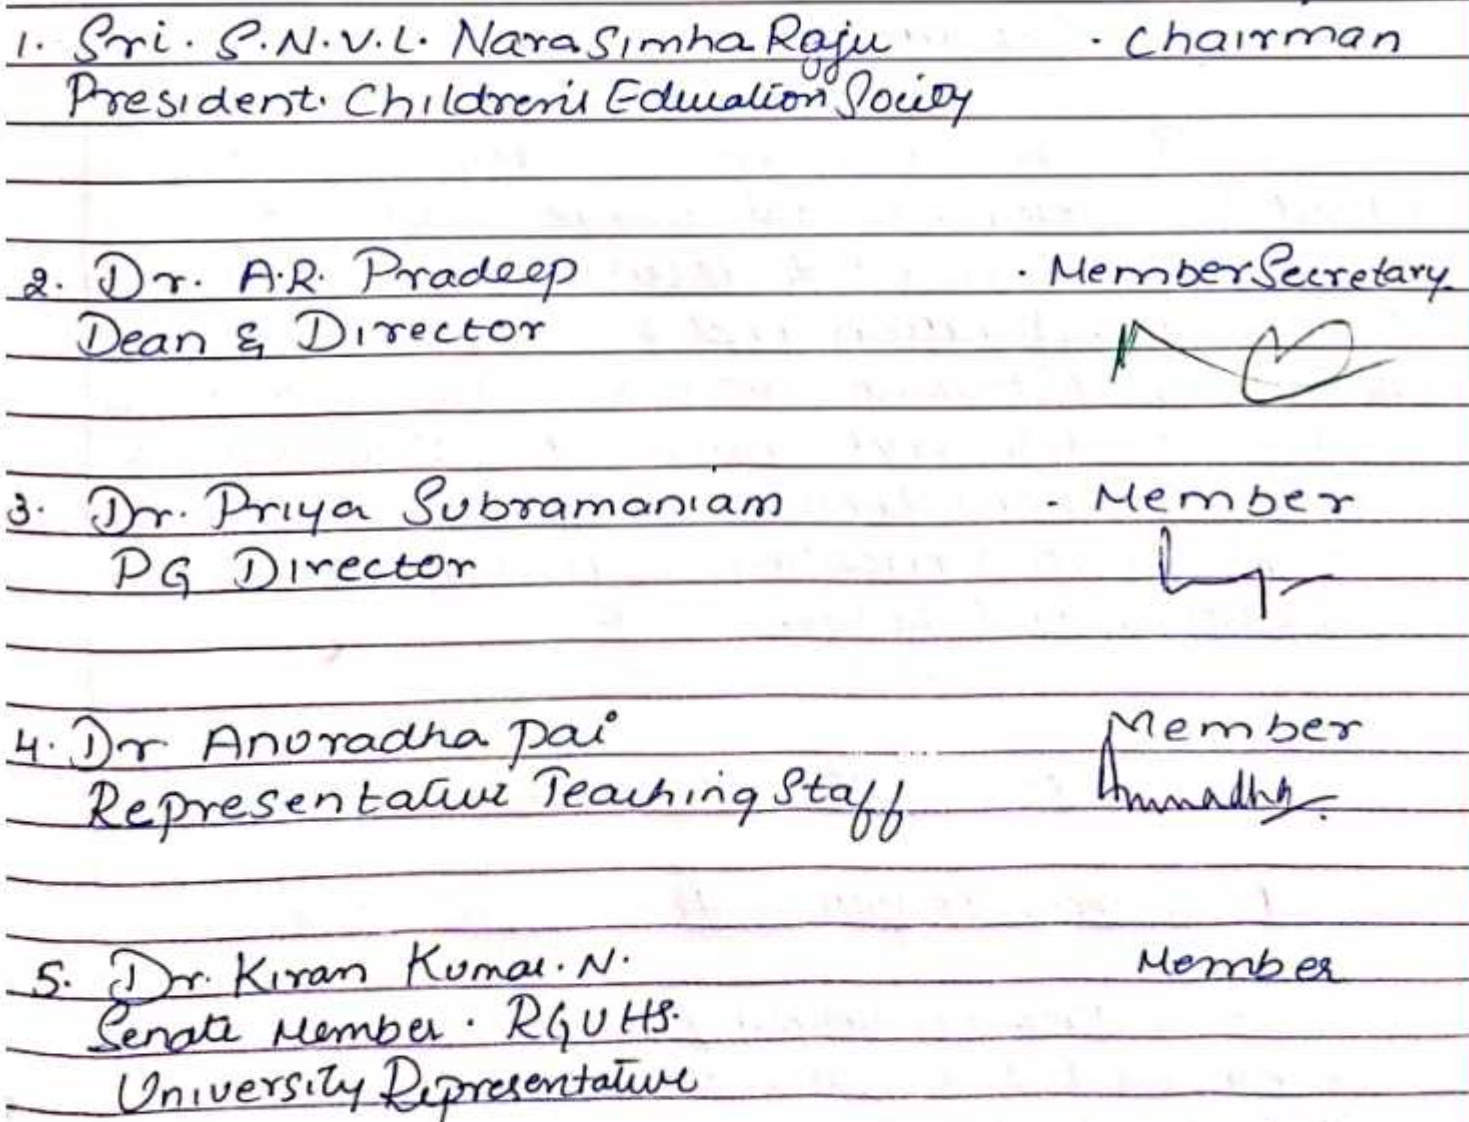 1. Sri. S.N.V.L. Narasimha Raju · Chairman
President. Children's Education Society
2. Dr. A.R. Pradeep · Member Secretary
Dean & Director
3. Dr. Priya Subramaniam - Member
PG Director
4. Dr Anuradha Pai Member
Representative Teaching Staff Anuradha
5. Dr. Kiran Kumar. N. Member
Senate Member. RGUHS.
University Representative